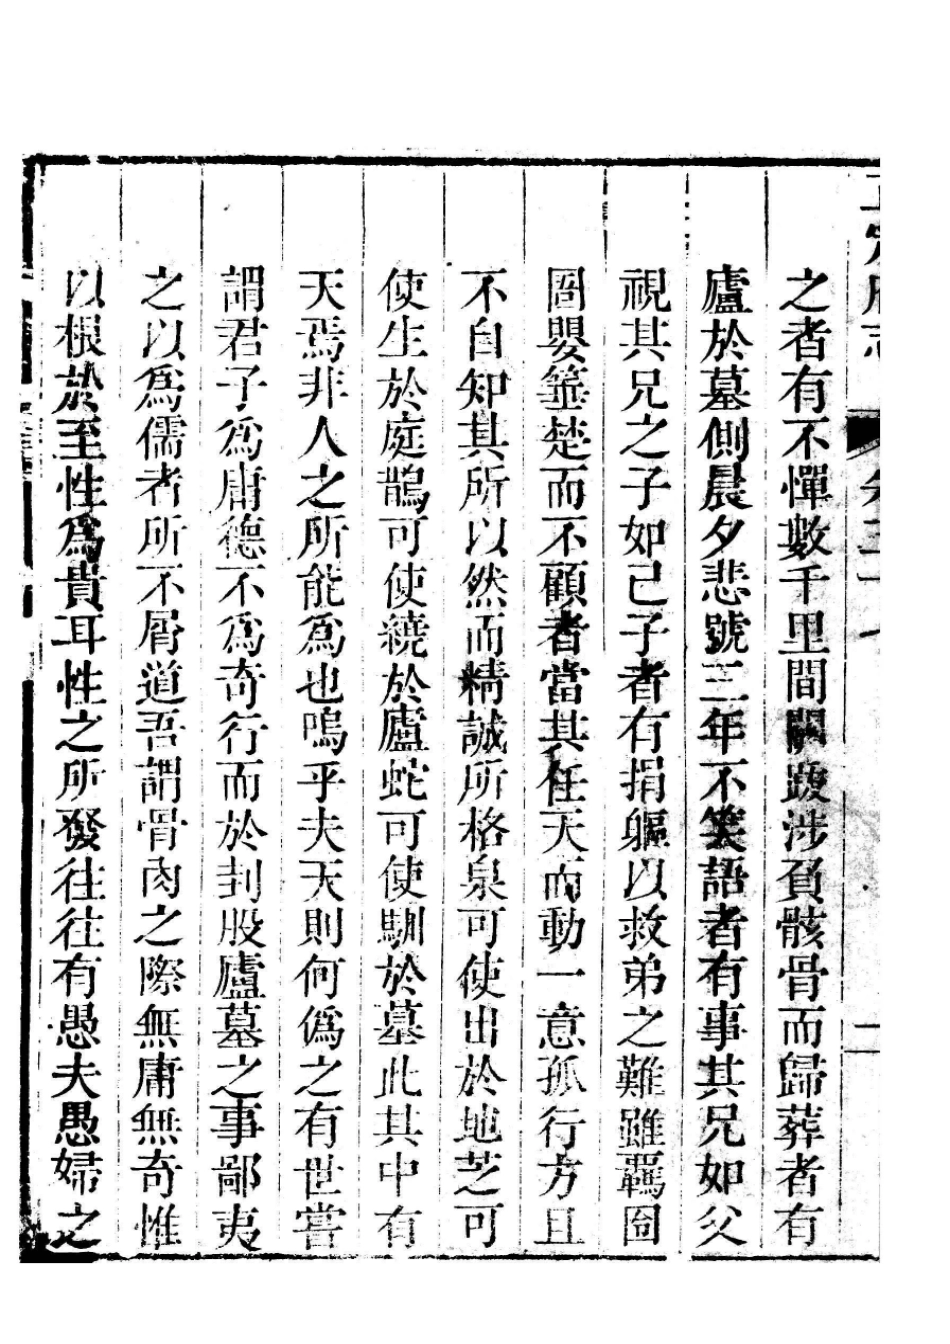 之者有不憚數千里間關跋涉負骸骨而歸葬者有
廬於墓側晨夕悲號三年不笑語者有事其兄如父
視其兄之子如己子者有捐軀以救弟之難雖羈囹
圄嬰箠楚而不顧者當其任天而動一意孤行方且
不自知其所以然而精誠所格泉可使出於地芝可
使生於庭鵲可使繞於廬蛇可使馴於墓此其中有
天焉非人之所能為也嗚乎夫天則何僞之有世嘗
謂君子為庸德不為奇行而於刲股廬墓之事鄙夷
之以為儒者所不屑道吾謂骨肉之際無庸無奇惟
以根於至性為貴耳性之所發往往有愚夫愚婦之